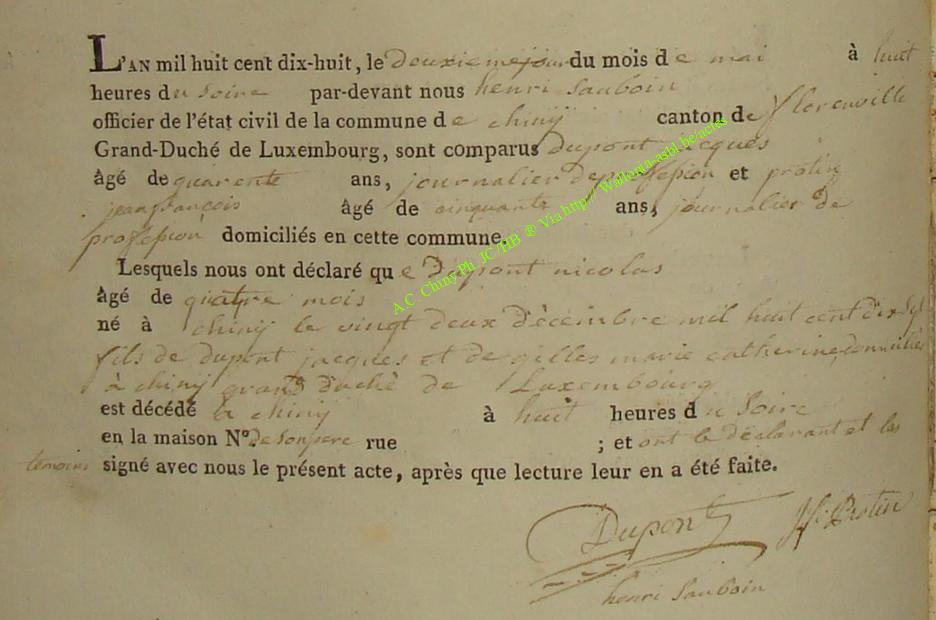 L'AN mil huit cent dix-huit, le deuxiemejour du mois de mai à huit
heures du soire par-devant nous henri Sauboin
officier de l'état civil de la commune de chiny canton de florenville
Grand-Duché de Luxembourg, sont comparus dupont jacques
âgé de quarente ans, journalier de profession et protin
jean françois âgé de cinquante ans, journalier de
profession domiciliés en cette commune.
Lesquels nous ont déclaré que Dupont nicolas
âgé de quatre mois
né à chiny le vingt deux décembre mil huit cent dix sept
fils de dupont jacques et de gilles marie catherine domiciliés
à chiny grand duché de Luxembourg
est décédé à chiny à huit heures du Soire
en la maison N° de son pere rue ; et ont le déclarant et les
temoins signé avec nous le présent acte, après que lecture leur en a été faite.
Dupont Jf Protin
henri Sauboin
A.C. Chiny Ph JC /HB ® Via http:// Wallonia-asbl.be/actes